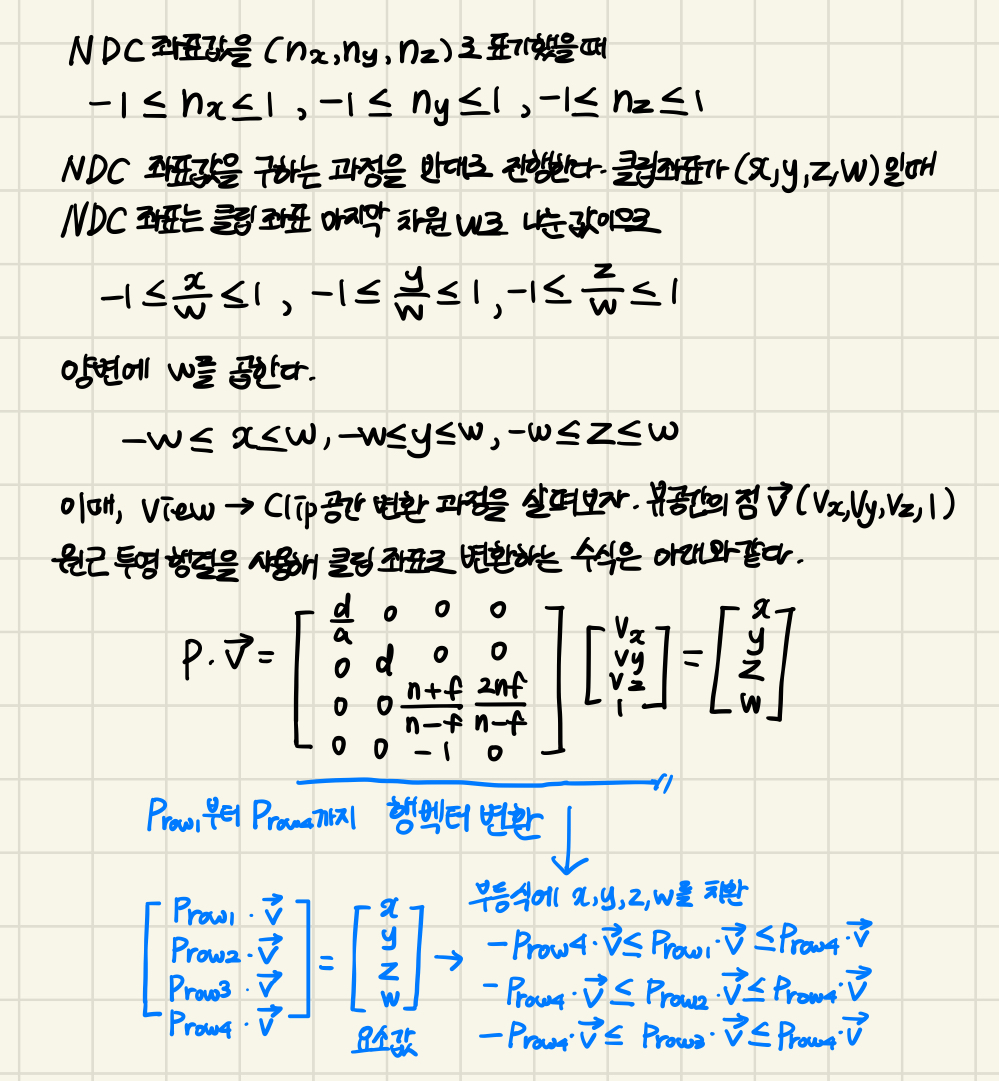 NDC 좌표값을 (nx, ny, nz)로 표기했을때
-1 ≤ nx ≤ 1 , -1 ≤ ny ≤ 1 , -1 ≤ nz ≤ 1
NDC 좌표값을 구하는 과정을 반대로 진행한다. 클립좌표가 (x,y,z,w)일때
NDC 좌표는 클립 좌표 마지막 차원 w로 나눈 값이므로
-1 ≤ x/w ≤ 1 , -1 ≤ y/w ≤ 1 , -1 ≤ z/w ≤ 1
양변에 w를 곱한다.
-w ≤ x ≤ w, -w ≤ y ≤ w, -w ≤ z ≤ w
이때, View → Clip 공간 변환 과정을 살펴보자. 뷰공간의 점 v⃗ (Vx, Vy, Vz, 1)
원근 투영 행렬을 사용해 클립 좌표로 변환하는 수식은 아래와 같다.
P · v⃗ = [ d/a 0 0 0 ] [ Vx ] = [ x ]
[ 0 d 0 0 ] [ Vy ] [ y ]
[ 0 0 n+f/n-f 2nf/n-f ] [ Vz ] [ z ]
[ 0 0 -1 0 ] [ 1 ] [ w ]
Prow1 부터 Prow4 까지 행벡터 변환
[ Prow1 · v⃗ ] = [ x ]
[ Prow2 · v⃗ ] [ y ]
[ Prow3 · v⃗ ] [ z ]
[ Prow4 · v⃗ ] [ w ]
요소값
→
부등식에 x, y, z, w를 치환
-Prow4 · v⃗ ≤ Prow1 · v⃗ ≤ Prow4 · v⃗
-Prow4 · v⃗ ≤ Prow2 · v⃗ ≤ Prow4 · v⃗
-Prow4 · v⃗ ≤ Prow3 · v⃗ ≤ Prow4 · v⃗